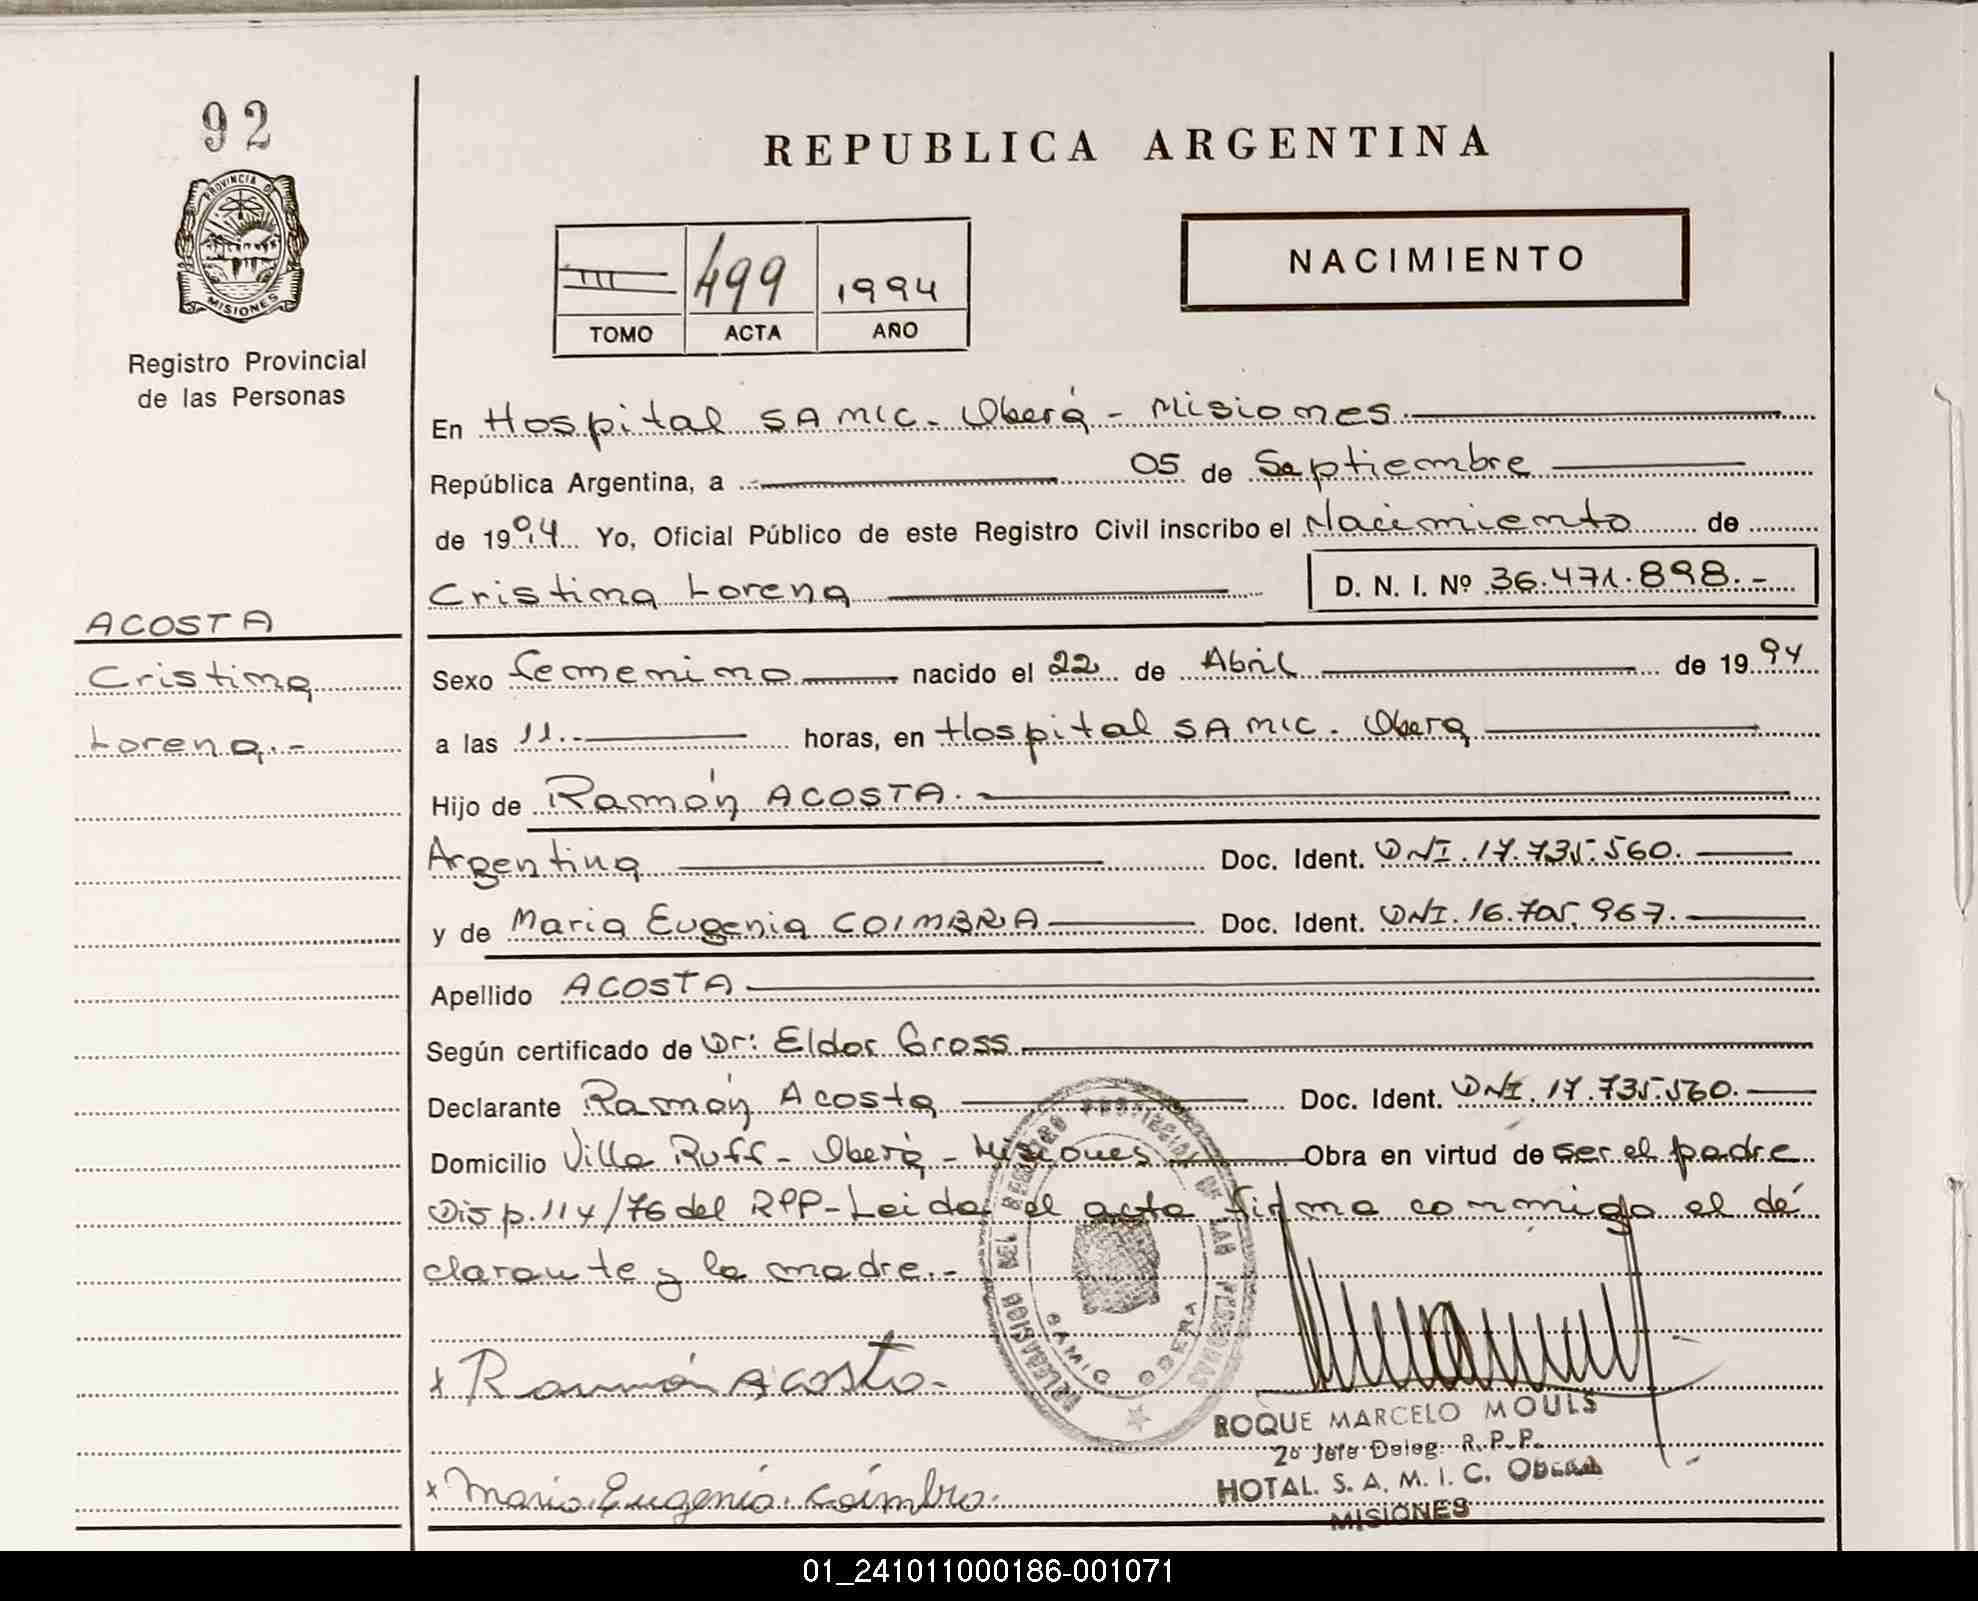 92
PROVINCIA DE
MISIONES
Registro Provincial
de las Personas
REPUBLICA ARGENTINA
499 1994
TOMO ACTA AÑO
NACIMIENTO
En Hospital SAMIC. Oberá - Misiones.
República Argentina, a 05 de Septiembre
de 1994 Yo, Oficial Público de este Registro Civil inscribo el Nacimiento de
Cristina Lorena D. N. I. Nº 36.471.898.-
ACOSTA
Cristina
Lorena.-
Sexo femenino nacido el 22 de Abril de 1994
a las 11.- horas, en Hospital SAMIC. Oberá
Hijo de Ramón ACOSTA.
Argentina Doc. Ident. DNI. 17.735.560.
y de Maria Eugenia COIMBRA Doc. Ident. DNI. 16.705.967.
Apellido ACOSTA
Según certificado de Dr: Eldor Gross
Declarante Ramón Acosta Doc. Ident. DNI. 17.735.560.
Domicilio Villa Ruff - Oberá - Misiones Obra en virtud de ser el padre
Disp. 114/76 del RPP - Leida el acta firma conmigo el de
clarante y la madre.-
DELEGACION DEL REGISTRO PROVINCIAL DE LAS PERSONAS
SAMIC OBERA
x Ramón Acosta.
ROQUE MARCELO MOULS
2º Jefe Deleg. R.P.P.
x Maria Eugenia Coimbra.
HOTAL. S. A. M. I. C. Oberá
MISIONES
01_241011000186-001071